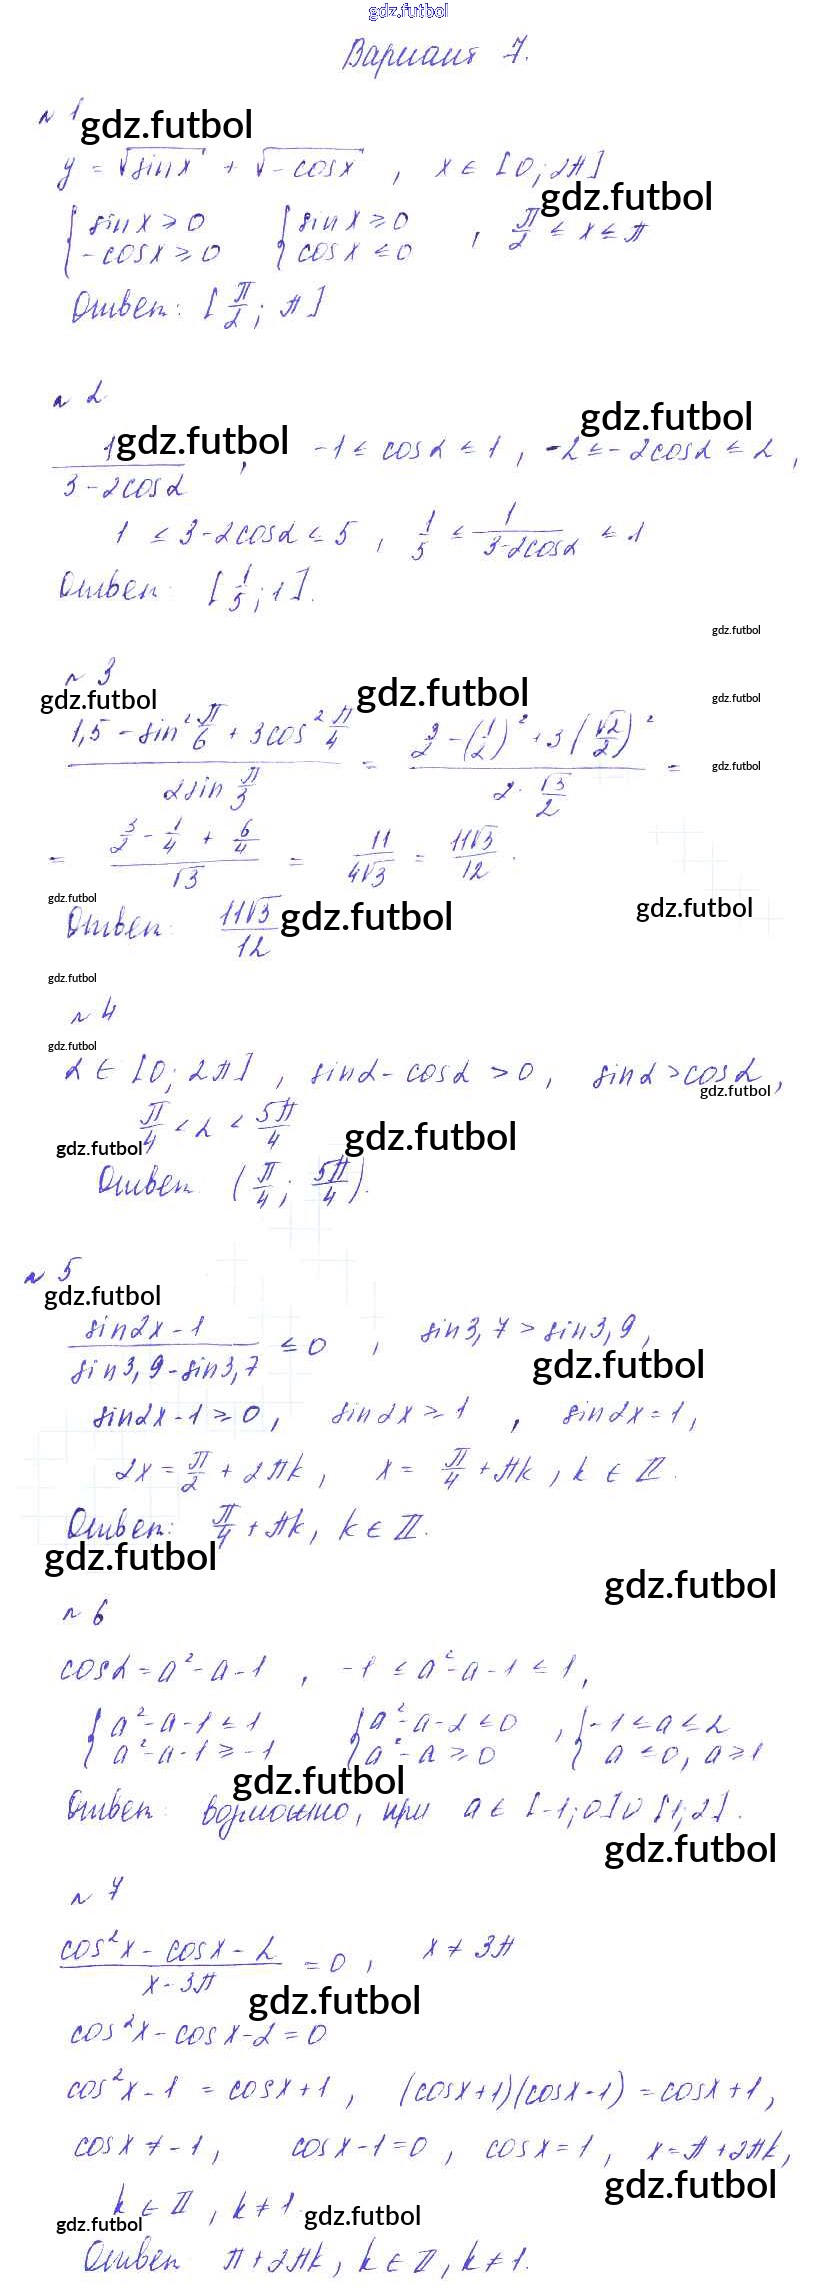 gdz.futbol
Вариант 7.
№ 1
gdz.futbol
y = √sinx + √-cosx , x ∈ [0; 2π]
gdz.futbol
{ sinx ≥ 0 { sinx ≥ 0 , π/2 ≤ x ≤ π
-cosx ≥ 0 cosx ≤ 0
Ответ: [π/2; π]
№ 2
gdz.futbol
gdz.futbol
1/(3-2cosα) , -1 ≤ cosα ≤ 1 , -2 ≤ -2cosα ≤ 2 ,
1 ≤ 3-2cosα ≤ 5 , 1/5 ≤ 1/(3-2cosα) ≤ 1
Ответ: [1/5; 1].
gdz.futbol
№ 3
gdz.futbol
gdz.futbol
gdz.futbol
(1,5 - sin² π/6 + 3cos² π/4)/(2sin π/3) = (3/2 - (1/2)² + 3(√2/2)²)/(2·√3/2) =
gdz.futbol
= (3/2 - 1/4 + 6/4)/√3 = 11/(4√3) = 11√3/12 .
gdz.futbol
Ответ: 11√3/12
gdz.futbol
gdz.futbol
gdz.futbol
№ 4
gdz.futbol
α ∈ [0; 2π] , sinα - cosα > 0 , sinα > cosα ,
gdz.futbol
π/4 < α < 5π/4
gdz.futbol
gdz.futbol
Ответ (π/4; 5π/4).
№ 5
gdz.futbol
(sin2x - 1)/(sin3,9 - sin3,7) ≤ 0 , sin3,7 > sin3,9 ,
gdz.futbol
sin2x - 1 ≥ 0 , sin2x ≥ 1 , sin2x = 1 ,
2x = π/2 + 2πk , x = π/4 + πk , k ∈ Z .
Ответ: π/4 + πk , k ∈ Z.
gdz.futbol
gdz.futbol
№ 6
cosα = a² - a - 1 , -1 ≤ a² - a - 1 ≤ 1 ,
{ a² - a - 1 ≤ 1 { a² - a - 2 ≤ 0 , { -1 ≤ a ≤ 2
a² - a - 1 ≥ -1 a² - a ≥ 0 a ≤ 0, a ≥ 1
gdz.futbol
Ответ: возможно, при a ∈ [-1; 0] ∪ [1; 2].
gdz.futbol
№ 7
(cos²x - cosx - 2)/(x - 3π) = 0 , x ≠ 3π
gdz.futbol
cos²x - cosx - 2 = 0
cos²x - 1 = cosx + 1 , (cosx + 1)(cosx - 1) = cosx + 1 ,
cosx ≠ -1 , cosx - 1 = 0 , cosx = 1 , x = π + 2πk ,
gdz.futbol
k ∈ Z , k ≠ 1.
gdz.futbol
gdz.futbol
Ответ π + 2πk , k ∈ Z, k ≠ 1.